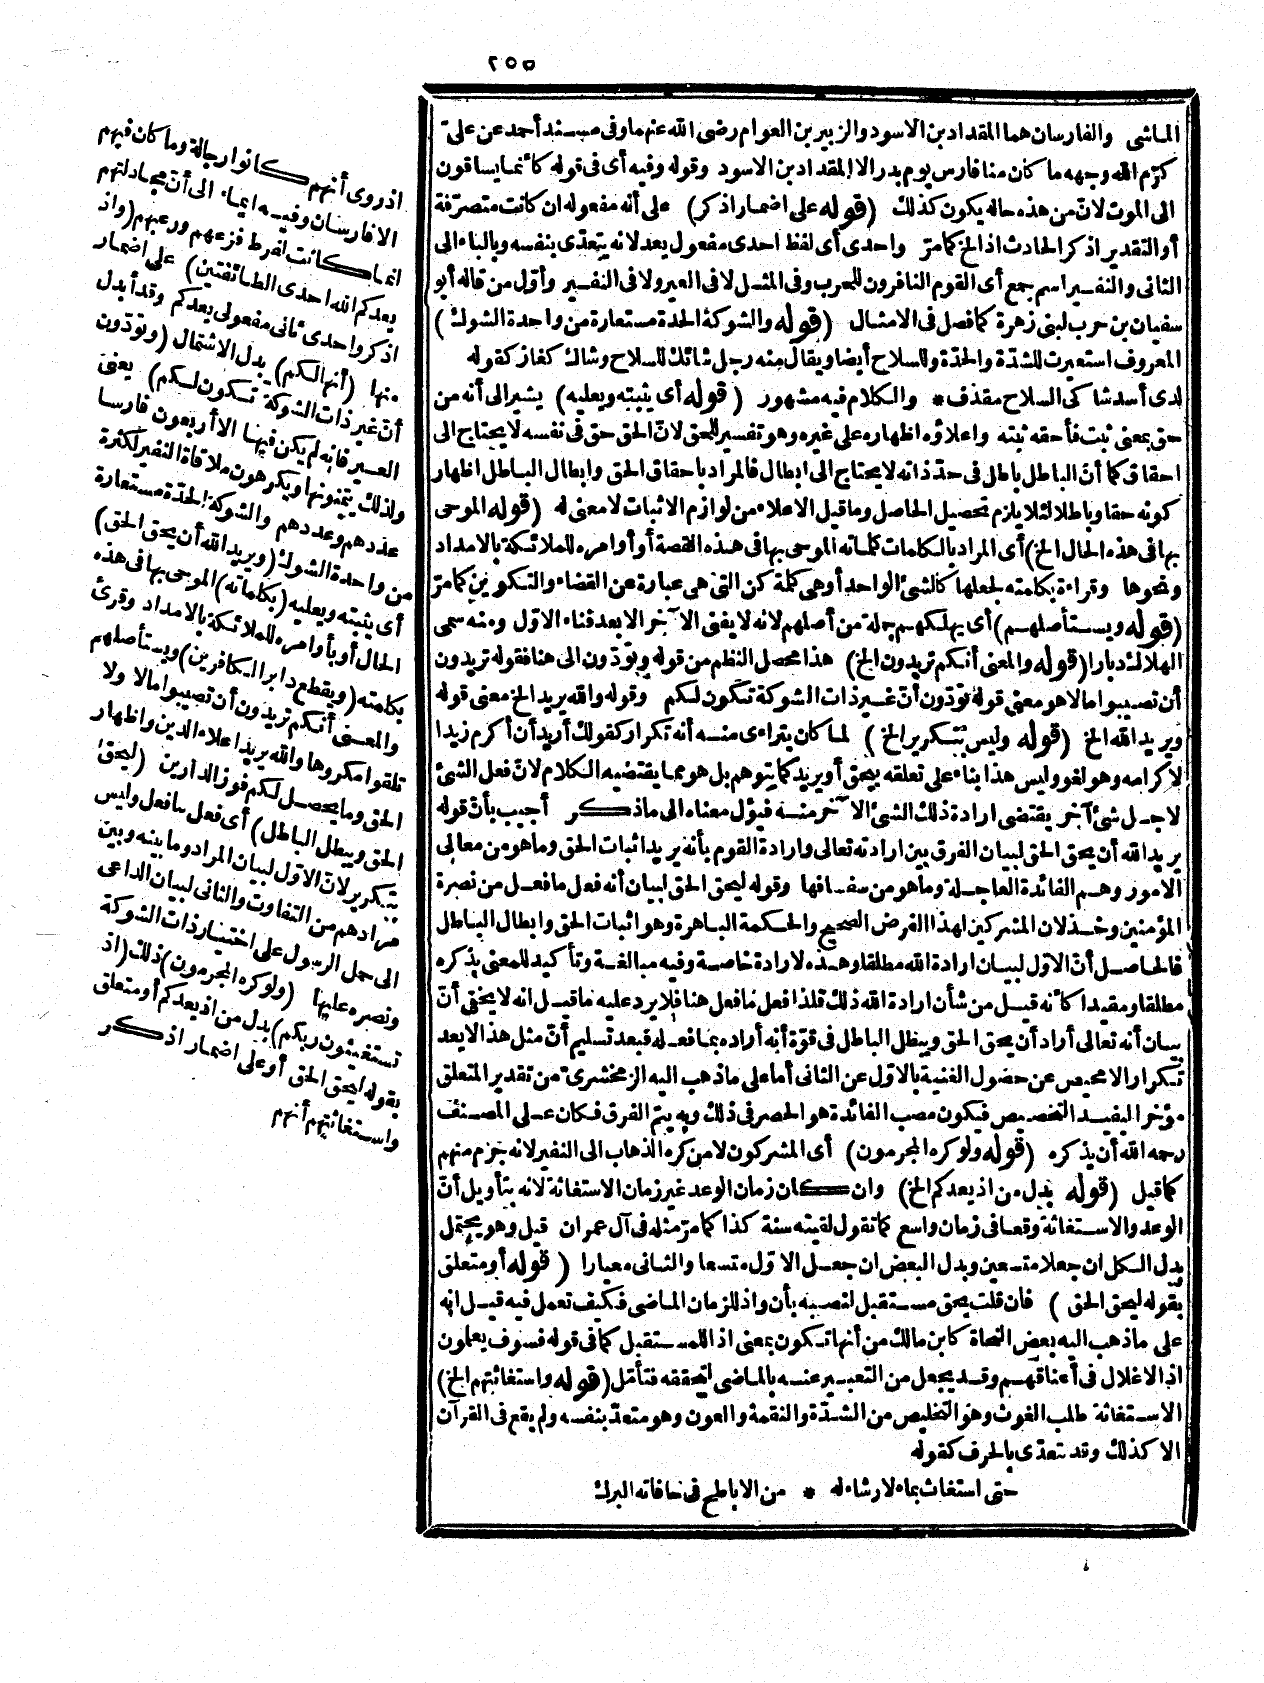 ٢٥٥
الماشي والفارسان هما المقداد بن الاسود والزبير بن العوام رضى الله عنهما وفى مسند أحمد عن علىّ
كرّم الله وجهه ما كان منا فارس يوم بدر الا المقداد بن الاسود وقوله وفيه أى فى قوله كأنما يساقون
الى الموت لانّ من هذه حاله يكون كذلك (قوله على اضمار اذكر) على أنه مفعوله ان كانت متصرّفة
أو التقدير اذكر الحادث اذ الخ كما مرّ واحدى أى لفظ احدى مفعول يعد لانه يتعدّى بنفسه وبالباء الى
الثانى والنفير اسم جمع أى القوم النافرون للحرب وفى المثل لا فى العير ولا فى النفير وأوّل من قاله أبو
سفيان بن حرب لبنى زهرة كما فصل فى الامثال (قوله والشوكة الحدة مستعارة من واحدة الشوك)
المعروف استعيرت للشدّة والحدّة وللسلاح أيضا ويقال منه رجل شائك للسلاح وشاك كغاز كقوله
لدى أسد شاكى السلاح مقذف * والكلام فيه مشهور (قوله أى يثبته ويعليه) يشير الى أنه من
حق بمعنى ثبت فأحقه ثبته واعلاؤه اظهاره على غيره وهو تفسير للحق لانّ الحق حق فى نفسه لا يحتاج الى
احقاق كما أنّ الباطل باطل فى حدّ ذاته لا يحتاج الى ابطال فالمراد باحقاق الحق وابطال الباطل اظهار
كونه حقا وباطلا لئلا يلزم تحصيل الحاصل وما قيل الاعلاء من لوازم الاثبات لا معنى له (قوله الموحى
بها فى هذه الحال الخ) أى المراد بالكلمات كلماته الموحى بها فى هذه القصة أو أوامره للملائكة بالامداد
ونحوها وقراءة بكلمته لجعلها كالشئ الواحد أو هى كلمة كن التى هى عبارة عن القضاء والتكوين كما مرّ
(قوله ويستأصلهم) أى يهلكهم جملة من أصلهم لانه لا يفنى الآخر الا بعد فناء الاوّل ومنه سمى
الهلاك دبارا (قوله والمعنى أنكم تريدون الخ) هذا محصل النظم من قوله وتودّون الى هنا فقوله تريدون
أن تصيبوا مالا هو معنى قوله تودّون أنّ غير ذات الشوكة تكون لكم وقوله والله يريد الخ معنى قوله
ويريد الله الخ (قوله وليس بتكرير الخ) لما كان يتراءى منه أنه تكرار كقولك أريد أن أكرم زيدا
لاكرامه وهو لغو وليس هذا بناء على تعلقه بيحق أو يريد كما يتوهم بل هو مما يقتضيه الكلام لانّ فعل الشئ
لاجل شئ آخر يقتضى ارادة ذلك الشئ الآخر منه فيؤل معناه الى ما ذكر أجيب بأنّ قوله
يريد الله أن يحق الحق لبيان الفرق بين ارادته تعالى وارادة القوم بأنه يريد اثبات الحق وما هو من معالى
الامور وهم الفائدة العاجلة وما هو من سفسافها وقوله ليحق الحق لبيان أنه فعل ما فعل من نصرة
المؤمنين وخذلان المشركين لهذا الغرض الصحيح والحكمة الباهرة وهو اثبات الحق وابطال الباطل
فالحاصل أنّ الاوّل لبيان ارادة الله مطلقا وهذه لارادة خاصة وفيه مبالغة وتأكيد للمعنى بذكره
مطلقا ومقيدا كأنه قيل من شأن ارادة الله ذلك فلذا فعل ما فعل هنا فلا يرد عليه ما قيل انه لا يخفى أنّ
بيان أنه تعالى أراد أن يحق الحق ويبطل الباطل فى قوّة أنه أراده بما فعله فبعد تسليم أنّ مثل هذا لا يعد
تكرارا لا محيص عن حصول الغنية بالاوّل عن الثانى أما على ما ذهب اليه الزمخشرىّ من تقدير المتعلق
مؤخرا ليفيد التخصيص فيكون مصب الفائدة هو الحصر فى ذلك وبه يتم الفرق فكان على المصنف
رحمه الله أن يذكره (قوله ولو كره المجرمون) أى المشركون لا من كره الذهاب الى النفير لانه جرم منهم
كما قيل (قوله بدل من اذ يعدكم الخ) وان كان زمان الوعد غير زمان الاستغاثة لانه بتأويل أنّ
الوعد والاستغاثة وقعا فى زمان واسع كما تقول لقيته سنة كذا كما مرّ مثله فى آل عمران قيل وهو يحتمل
بدل الكل ان جعلا متسعين وبدل البعض ان جعل الاوّل متسعا والثانى معيارا (قوله أو متعلق
بقوله ليحق الحق) فان قلت يحق مستقبل لنصبه بأن واذ للزمان الماضى فكيف تعمل فيه قيل انه
على ما ذهب اليه بعض النحاة كابن مالك من أنها تكون بمعنى اذا للمستقبل كما فى قوله فسوف يعلمون
اذ الاغلال فى أعناقهم وقد يجعل من التعبير عنه بالماضى لتحققه فتأمّل (قوله واستغاثتهم الخ)
الاستغاثة طلب الغوث وهو التخليص من الشدّة والنقمة والعون وهو متعدّ بنفسه ولم يقع فى القرآن
الا كذلك وقد تعدّى بالحرف كقوله
حتى استغاث بماء لا رشاء له * من الاباطح فى حافاته البرك
اذ روى أنهم كانوا رجالة وما كان فيهم
الا فارسان وفيه ايماء الى أنّ مجادلتهم
انما كانت لفرط فزعهم ورعبهم (واذ
يعدكم الله احدى الطائفتين) على اضمار
اذكر واحدى ثانى مفعولى يعدكم وقد أبدل
منها (أنها لكم) بدل الاشتمال (وتودّون
أنّ غير ذات الشوكة تكون لكم) يعنى
العير فانه لم يكن فيها الا أربعون فارسا
ولذلك يتمنونها ويكرهون ملاقاة النفير لكثرة
عددهم وعددهم والشوكة الحدّة مستعارة
من واحدة الشوك (ويريد الله أن يحق الحق)
أى يثبته ويعليه (بكلماته) الموحى بها فى هذه
الحال أو بأوامره للملائكة بالامداد وقرئ
بكلمته (ويقطع دابر الكافرين) ويستأصلهم
والمعنى أنكم تريدون أن تصيبوا مالا ولا
تلقوا مكروها والله يريد اعلاء الدين واظهار
الحق وما يحصل لكم فوز الدارين (ليحق
الحق ويبطل الباطل) أى فعل ما فعل وليس
بتكرير لانّ الاوّل لبيان المراد وما بينه وبين
مرادهم من التفاوت والثانى لبيان الداعى
الى حمل الرسول على اختيار ذات الشوكة
ونصره عليها (ولو كره المجرمون) ذلك (اذ
تستغيثون ربكم) بدل من اذ يعدكم أو متعلق
بقوله ليحق الحق أو على اضمار اذكر
واستغاثتهم أنهم